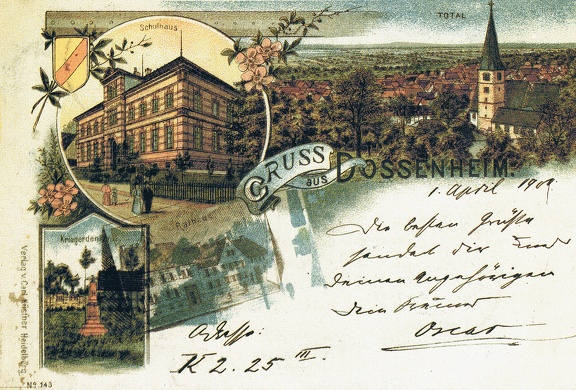 Schulhaus
TOTAL
GRUSS
AUS
DOSSENHEIM.
Rathaus
Kriegerdenkmal
Verlag v. Carl Küstner Heidelberg
No 143
1. April 1909
Die besten Grüße
sendet dir und
deinen Angehörigen
dein Freund
Oscar
Adresse:
K 2. 25 III.